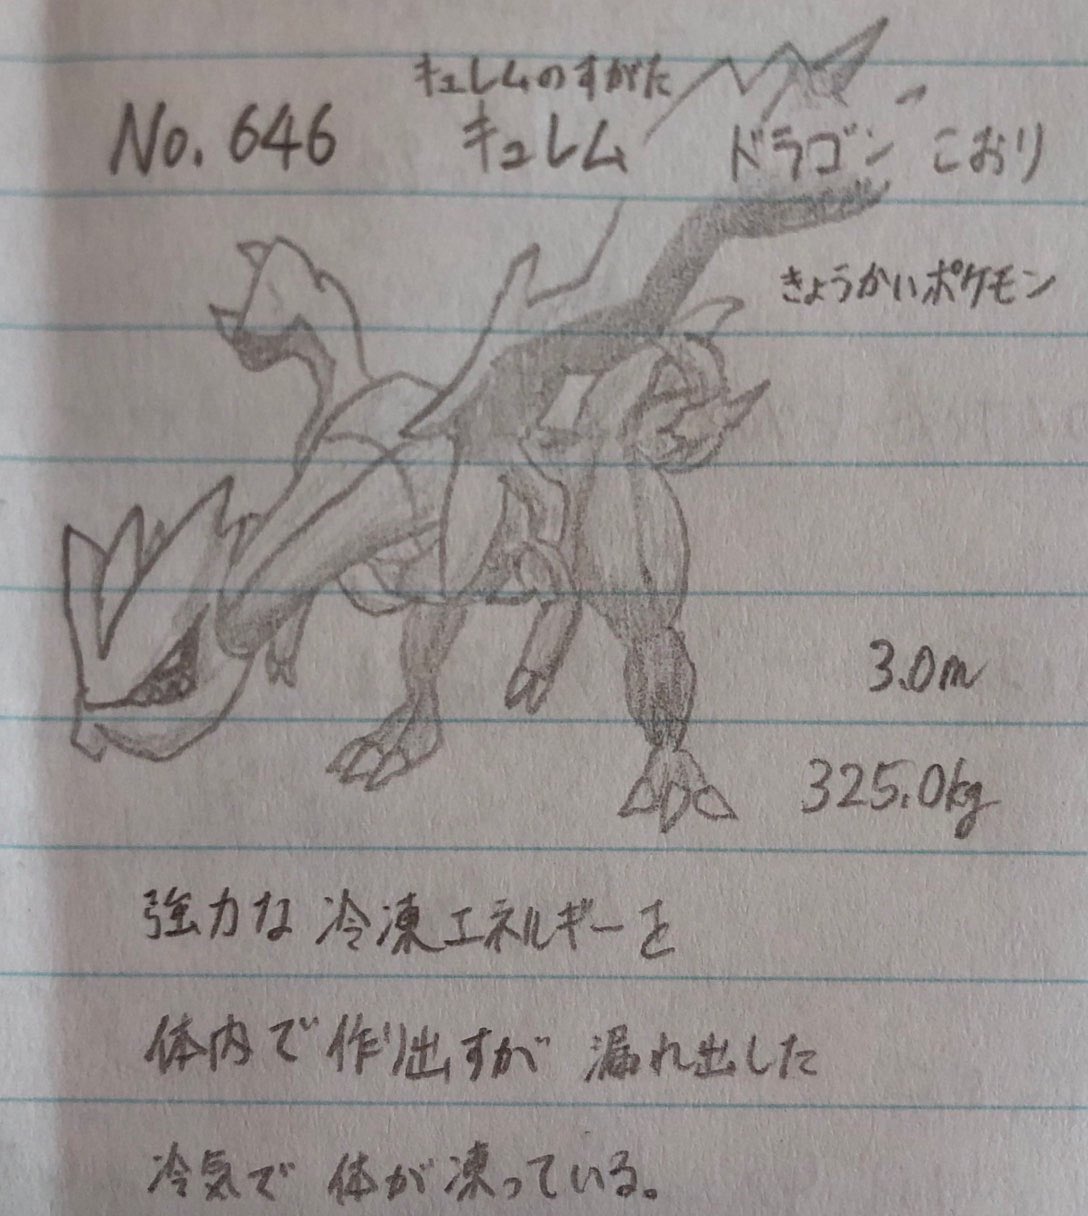 キュレムのすがた
No.646 キュレム ドラゴン こおり
きょうかいポケモン
3.0m
325.0kg
強力な 冷凍エネルギーを
体内で 作り出すが 漏れ出した
冷気で 体が凍っている。